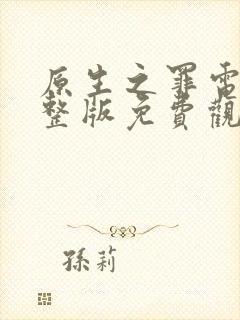 原生之罪電
整版免費觀
孫莉